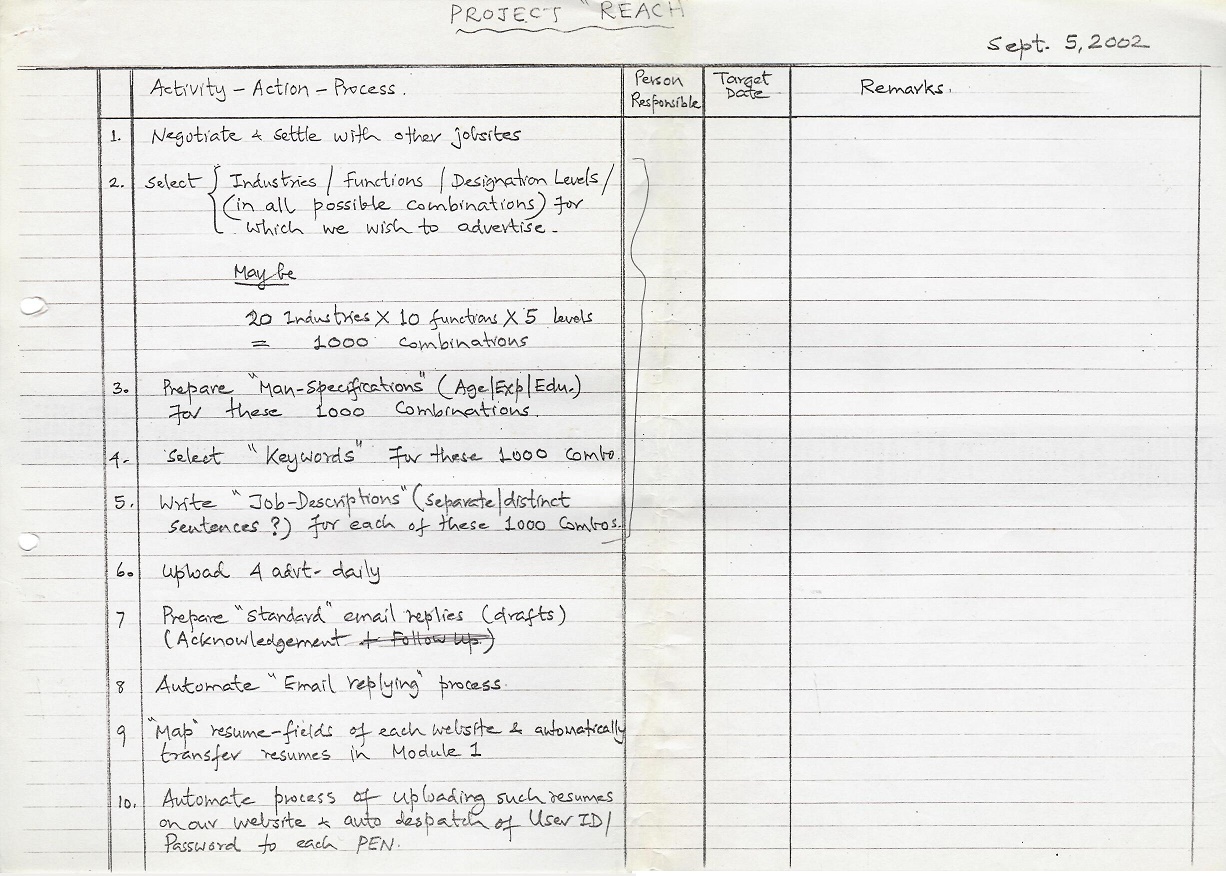 PROJECT "REACH
Sept. 5, 2002
Activity – Action – Process.
Person Responsible
Target Date
Remarks.
1. Negotiate & settle with other jobsites
2. Select { Industries / Functions / Designation Levels /
(in all possible combinations) for
which we wish to advertise.
May be
20 Industries X 10 functions X 5 levels
= 1000 combinations
3. Prepare "Man-Specifications" (Age|Exp|Edu.)
for these 1000 Combinations.
4. Select "Keywords" for these 1000 Combo.
5. Write "Job-Descriptions" (separate|distinct
sentences ?) for each of these 1000 Combos.
6. Upload 4 advt- daily
7 Prepare "Standard" email replies (drafts)
(Acknowledgement + Follow Up.)
8 Automate "Email replying" process.
9 "Map" resume-fields of each website & automatically
transfer resumes in Module 1
10. Automate process of uploading such resumes
on our website & auto despatch of User ID/
Password to each PEN.